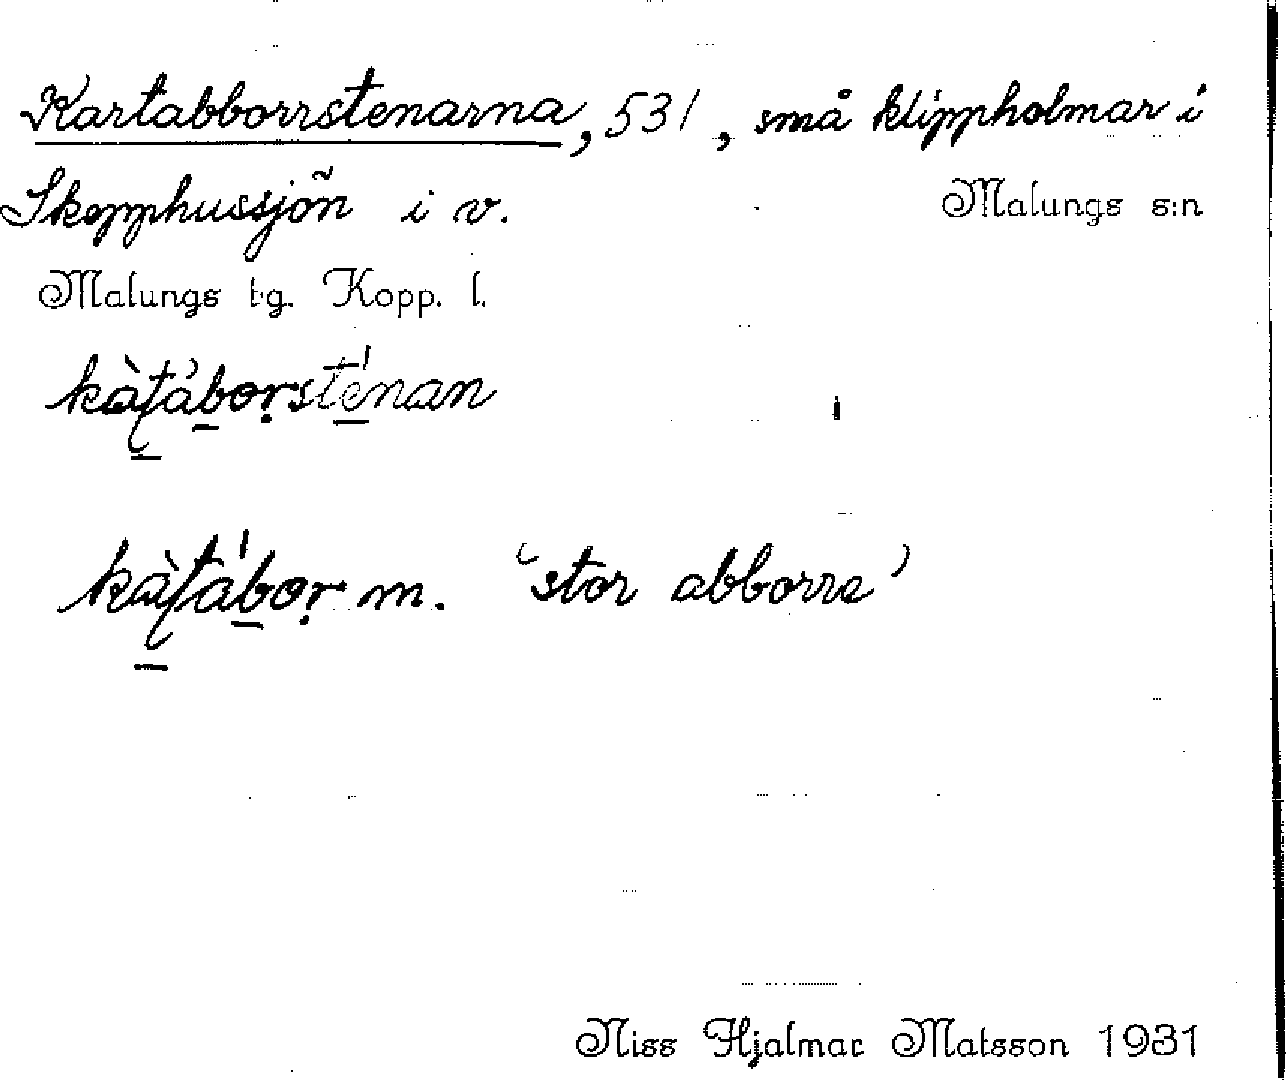 Kartabborrstenarna, 531, små klippholmar i
Skepphussjön i v. Malungs s:n
Malungs tg. Kopp. l.
kàʈáboṛsténan
kàʈáboṛ m. 'stor abborre'
Niss Hjalmar Matsson 1931